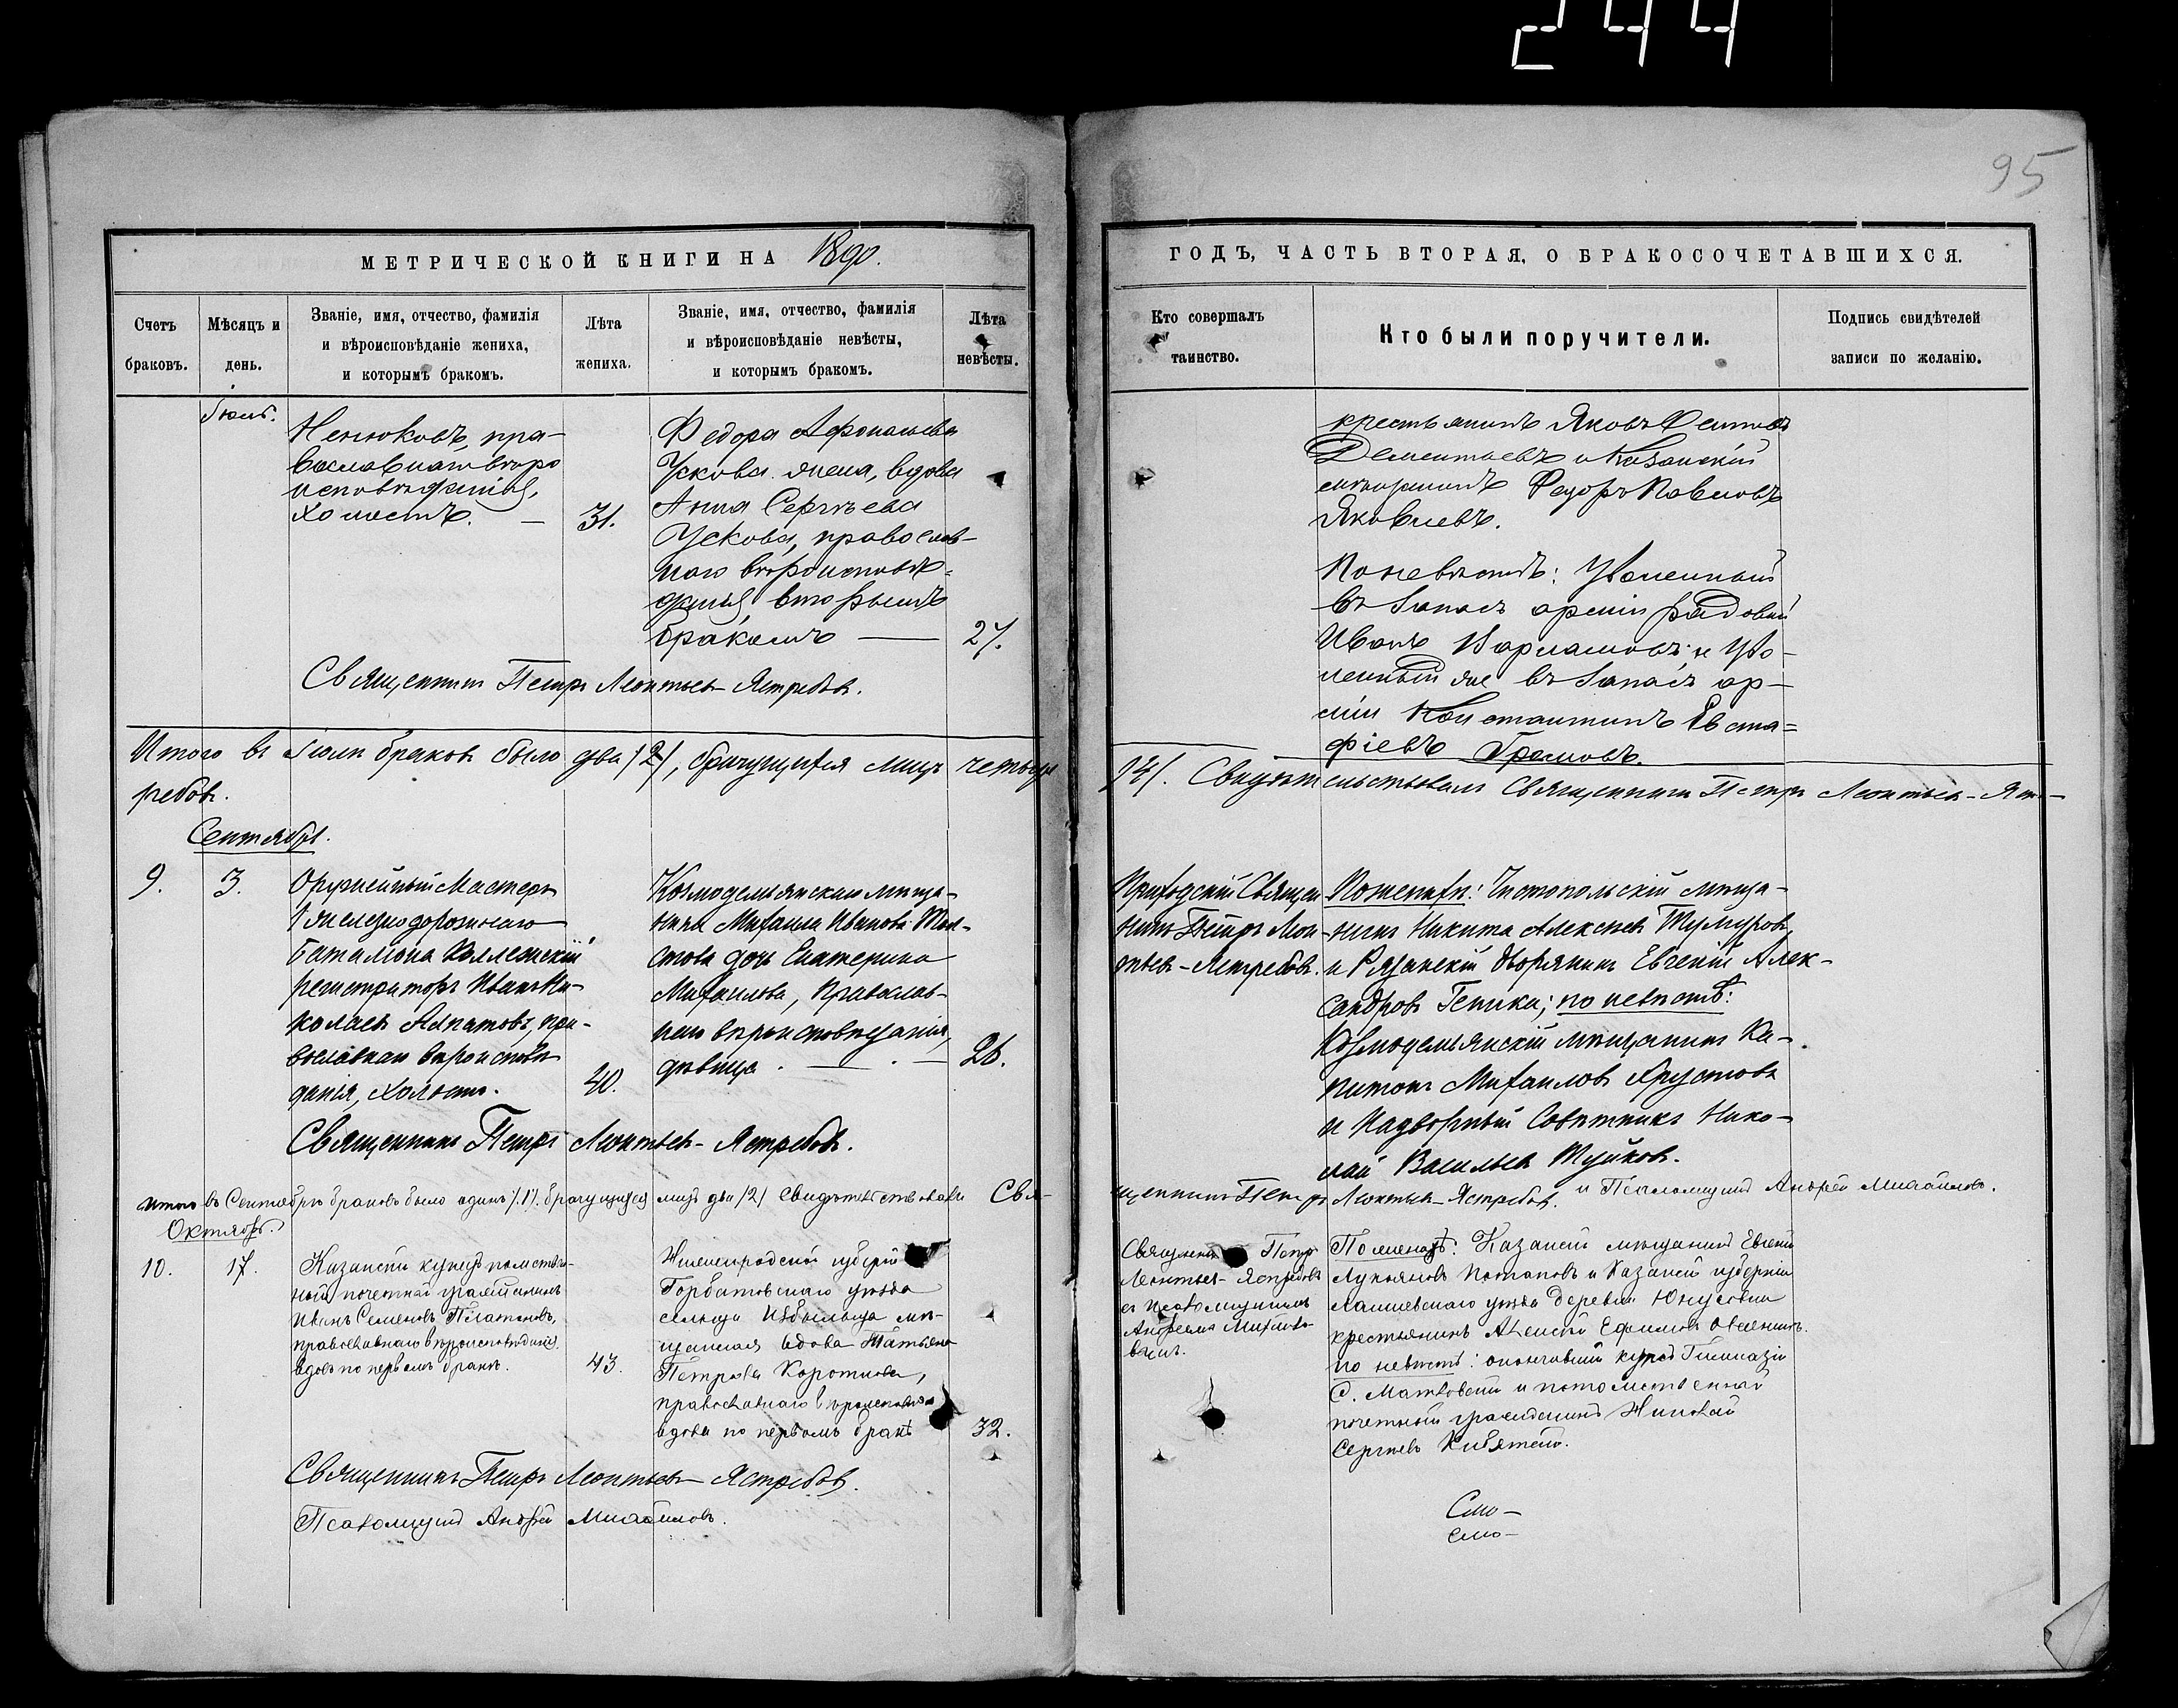 244
95
МЕТРИЧЕСКОЙ КНИГИ НА 1890.
ГОДЪ, ЧАСТЬ ВТОРАЯ, О БРАКОСОЧЕТАВШИХСЯ.
Счетъ браковъ.
Мѣсяцъ и день.
Званіе, имя, отчество, фамилія
и вѣроисповѣданіе жениха,
и которымъ бракомъ.
Лѣта жениха.
Званіе, имя, отчество, фамилія
и вѣроисповѣданіе невѣсты,
и которымъ бракомъ.
Лѣта невѣсты.
Кто совершалъ
таинство.
Кто были поручители.
Подпись свидѣтелей
записи по желанію.
Іюль.
православнаго вѣро
исповѣданія,
холостъ. — 31.
Федора
Ускова жена, вдова
Анна Сергѣева
Ускова, православ-
наго вѣроисповѣ-
данія, вторымъ
бракомъ — 27.
крестьянинъ Яковъ
Дементьевъ и Казанскій
мѣщанинъ Федоръ Павловъ
Яковлевъ.
По невѣстѣ: Уволенный
въ запасъ арміи рядовой
Иванъ Варламовъ и Уво-
ленный же въ запасъ ар-
міи Константинъ Евста-
фіевъ Громовъ.
Священникъ Петръ Леонтьев-Ястребовъ.
Итого въ Іюлѣ браковъ было два /2/, брачущихся лицъ четыре
/4/. Свидѣтельствовалъ Священникъ Петръ Леонтьев-Яст-
ребовъ.
Сентябрь.
9. 3.
Оружейный Мастеръ
1 железнодорожнаго
баталіона Коллежскій
регистраторъ Иванъ Ни-
колаевъ Алпатовъ, пра-
вославнаго вѣроисповѣ
данія, холостъ. 40.
Козмодемьянскаго мѣща-
нина Михаила Иванова
дочь Екатерина
Михаилова, православ-
наго вѣроисповѣданія,
дѣвица. — 26.
Приходскій Священ
никъ Петръ Леон-
тьев-Ястребовъ.
По женихѣ: Чистопольскій мѣща-
нинъ Никита Алексѣевъ
и Рязанскій дворянинъ Евгеній Алек-
сандровъ Геника; по невѣстѣ:
Козмодемьянскій мѣщанинъ Ка-
питонъ Михаиловъ
и Надворный Совѣтникъ Нико-
лай Васильевъ
Священникъ Петръ Леонтьев-Ястребовъ.
Итого въ Сентябрѣ браковъ было одинъ /1/. брачущихся лицъ два /2/ Свидѣтельствовали Свя-
щенникъ Петръ Леонтьев-Ястребовъ. и Псаломщикъ Андрей Михайловъ.
Октябрь.
10. 17.
Казанскій купецъ потомствен-
ный почетный гражданинъ
Иванъ Семеновъ Платоновъ,
православнаго вѣроисповѣданія,
вдовъ по первомъ бракѣ. 43.
Нижегородской губерніи
Горбатовскаго уѣзда
сельца Избыльца мѣ-
щанская вдова Татьяна
Петрова Коротнева,
православнаго вѣроисповѣд
вдова по первомъ бракѣ 32.
Священн Петръ
Леонтьев-Ястребовъ
съ псаломщикомъ
Андреемъ Михайло-
вымъ.
По женихѣ: Казанскій мѣщанинъ Евгеній
Лукьяновъ Потаповъ и Казанской губерніи
Лаишевскаго уѣзда деревни
крестьянинъ Алексѣй Ефимовъ
по невѣстѣ: окончившій курсъ Гимназіи
С. Матковскій и потомственный
почетный гражданинъ Николай
Сергѣевъ
Священникъ Петръ Леонтьев-Ястребовъ.
Псаломщикъ Андрей Михайловъ.